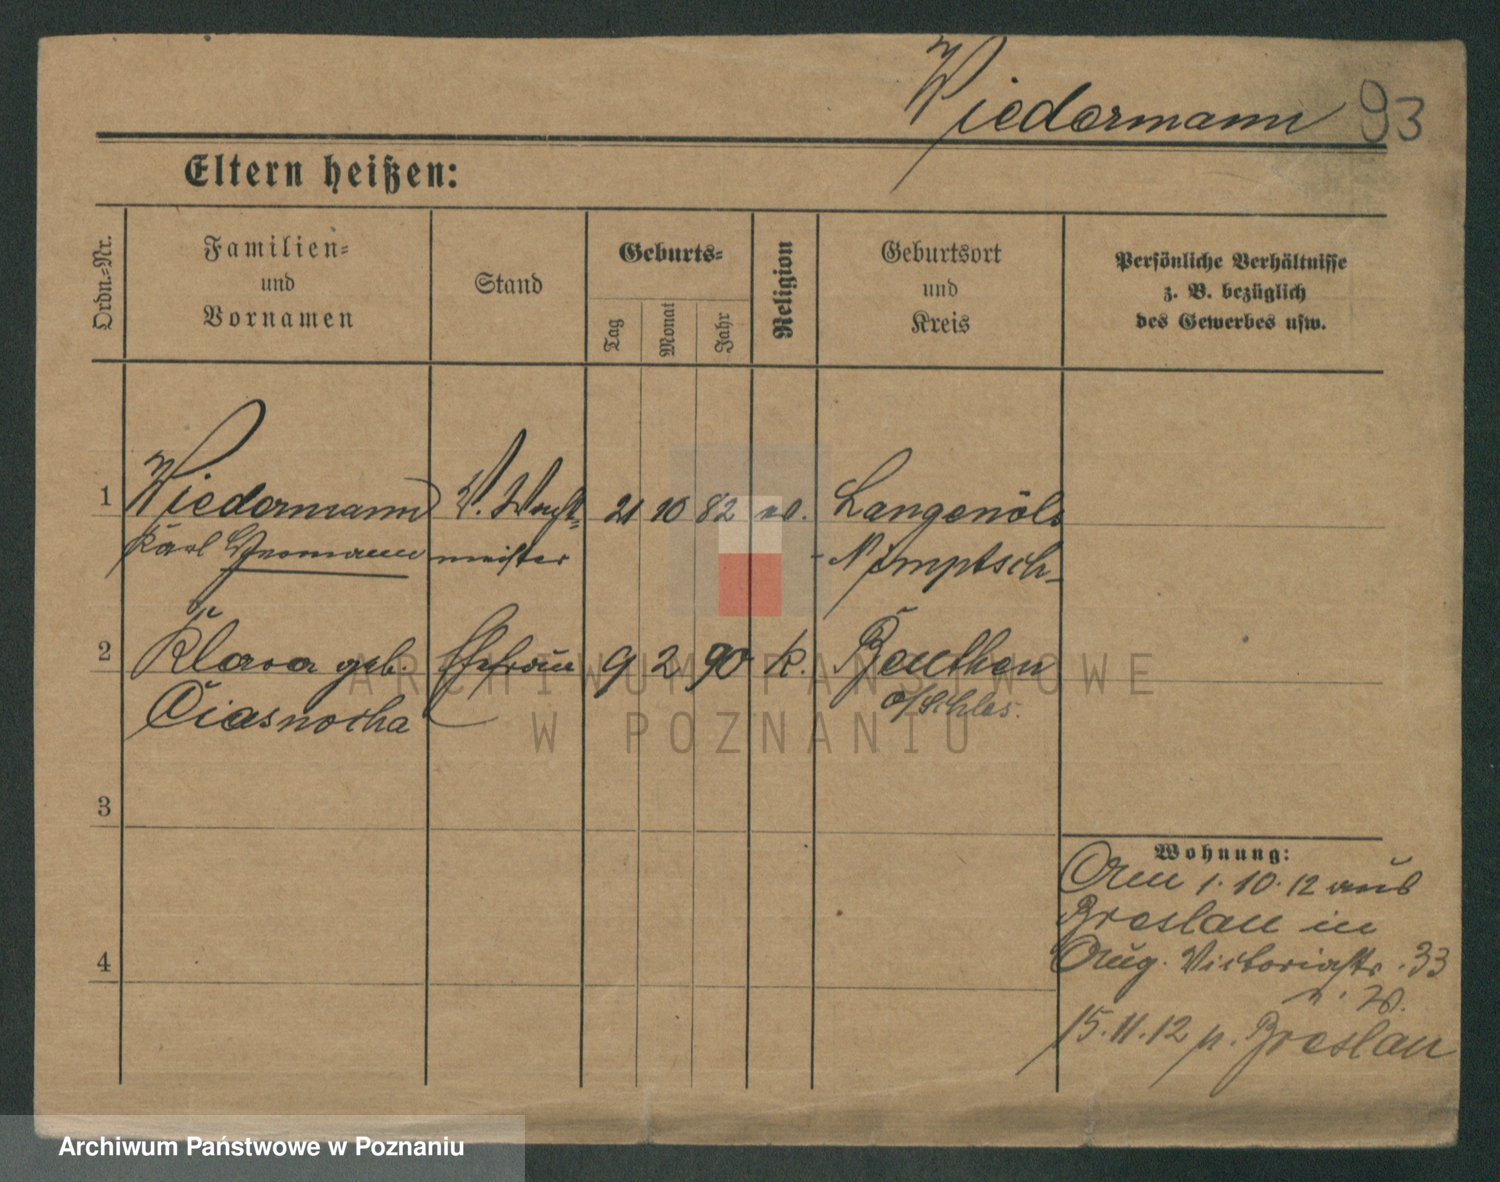 Wiedermann 93
Eltern heißen:
Ordn.-Nr.
Familien-
und
Vornamen
Stand
Geburts-
Tag
Monat
Jahr
Religion
Geburtsort
und
Kreis
Persönliche Verhältnisse
z. B. bezüglich
des Gewerbes usw.
1 Wiedermann V. Wacht- 21 10 82 ev. Langenöls
Karl Hermann meister Nimptsch
2 Klara geb. Ehefrau 9 2 90 k. Beuthen
Ciasnocha o/Schles.
3
4
Wohnung:
1.10.12 aus
Breslau in
Aug. Victoriastr. 33
15.11.12 n. Breslau
ARCHIWUM PAŃSTWOWE
W POZNANIU
Archiwum Państwowe w Poznaniu